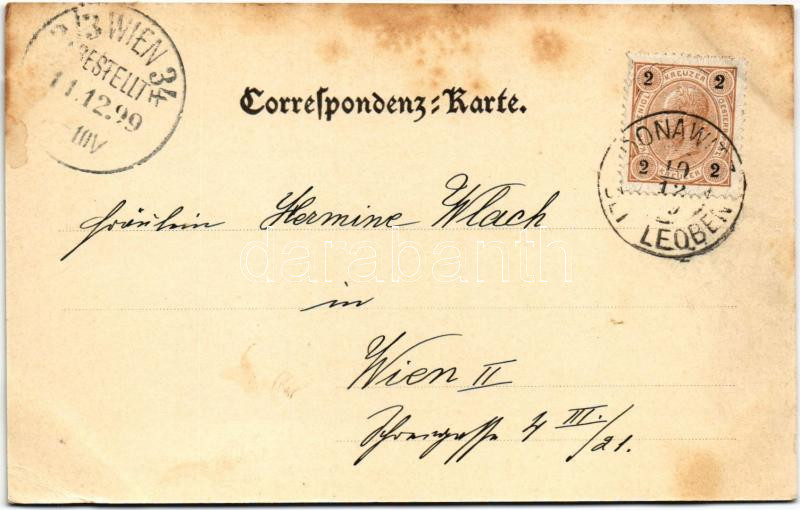 2/3 WIEN 34
BESTELLT
11.12.99
Correspondenz-Karte.
2 KREUZER 2
2 KREUZER 2
DONAWITZ
10
12
BEI LEOBEN
Fräulein Hermine Wlach
darabanth
in
Wien II
4 III./21.